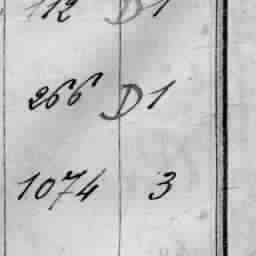 112 D 1
266 D 1
1074 3